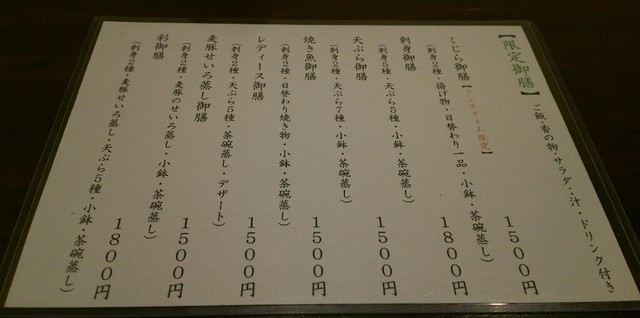 【限定御膳】 ご飯・香の物・サラダ・汁・ドリンク付き
くじら御膳【ランチタイム限定】 1500円
(刺身2種・揚げ物・日替わり一品・小鉢・茶碗蒸し)
刺身御膳 1800円
(刺身5種・天ぷら5種・小鉢・茶碗蒸し)
天ぷら御膳 1500円
(刺身2種・天ぷら7種・小鉢・茶碗蒸し)
焼き魚御膳 1500円
(刺身2種・日替わり焼き物・小鉢・茶碗蒸し)
レディース御膳 1500円
(刺身2種・天ぷら5種・茶碗蒸し・デザート)
麦豚せいろ蒸し御膳 1500円
(刺身2種・麦豚のせいろ蒸し・小鉢・茶碗蒸し)
彩御膳 1800円
(刺身2種・麦豚せいろ蒸し・天ぷら5種・小鉢・茶碗蒸し)